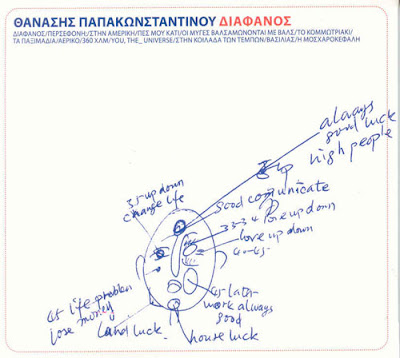 ΘΑΝΑΣΗΣ ΠΑΠΑΚΩΝΣΤΑΝΤΙΝΟΥ ΔΙΑΦΑΝΟΣ
ΔΙΑΦΑΝΟΣ/ΠΕΡΣΕΦΟΝΗ/ΣΤΗΝ ΑΜΕΡΙΚΗ/ΠΕΣ ΜΟΥ ΚΑΤΙ/ΟΙ ΜΥΓΕΣ ΒΑΛΣΑΜΩΝΟΝΤΑΙ ΜΕ ΒΑΛΣ/ΤΟ ΚΟΜΜΩΤΡΙΑΚΙ/
ΤΑ ΠΑΞΙΜΑΔΙΑ/ΑΕΡΙΚΟ/360 ΧΛΜ/YOU, THE_ UNIVERSE/ΣΤΗΝ ΚΟΙΛΑΔΑ ΤΩΝ ΤΕΜΠΩΝ/ΒΑΣΙΛΙΑΣ/Η ΜΟΣΧΑΡΟΚΕΦΑΛΗ
always
good luck
high people
up
35-up down
change life
good comunicate
33-34 love up down
love up down
40-45-
45 life problem
lose money
45 later
work always
good
land luck
house luck